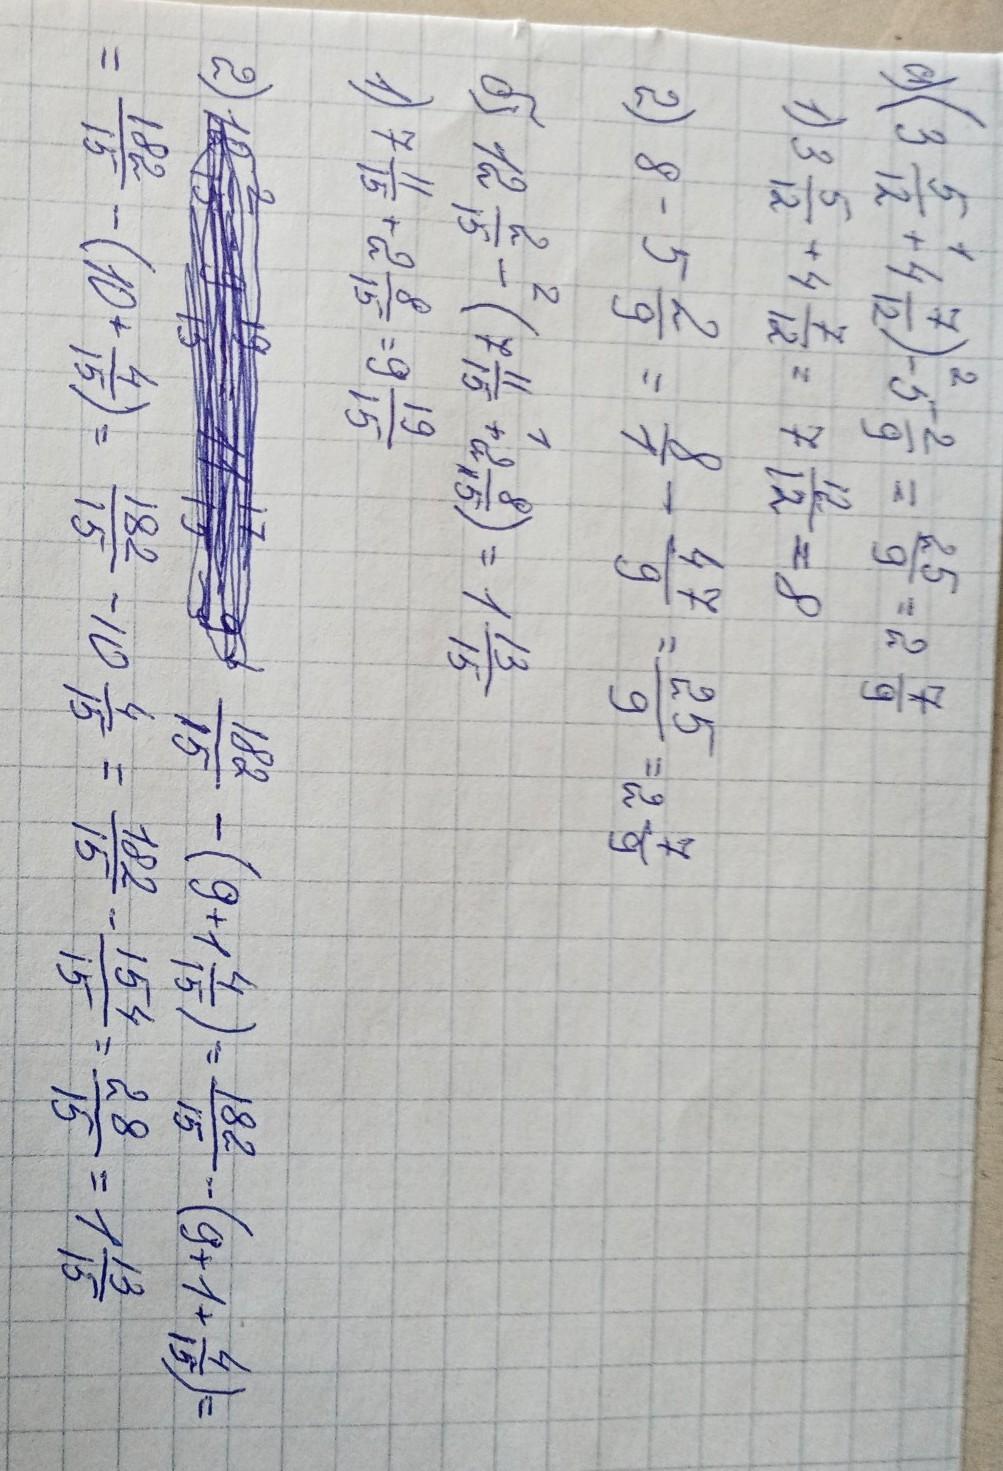 а) (3 5/12 + 4 7/12) - 5 2/9 = 25/9 = 2 7/9
1) 3 5/12 + 4 7/12 = 7 12/12 = 8
2) 8 - 5 2/9 = 8/1 - 47/9 = 25/9 = 2 7/9
б) 12 2/15 - (7 11/15 + 2 8/15) = 1 13/15
1) 7 11/15 + 2 8/15 = 9 19/15
2) 182/15 - (9 + 1 4/15) = 182/15 - (9 + 1 + 4/15) =
= 182/15 - (10 + 4/15) = 182/15 - 10 4/15 = 182/15 - 154/15 = 28/15 = 1 13/15